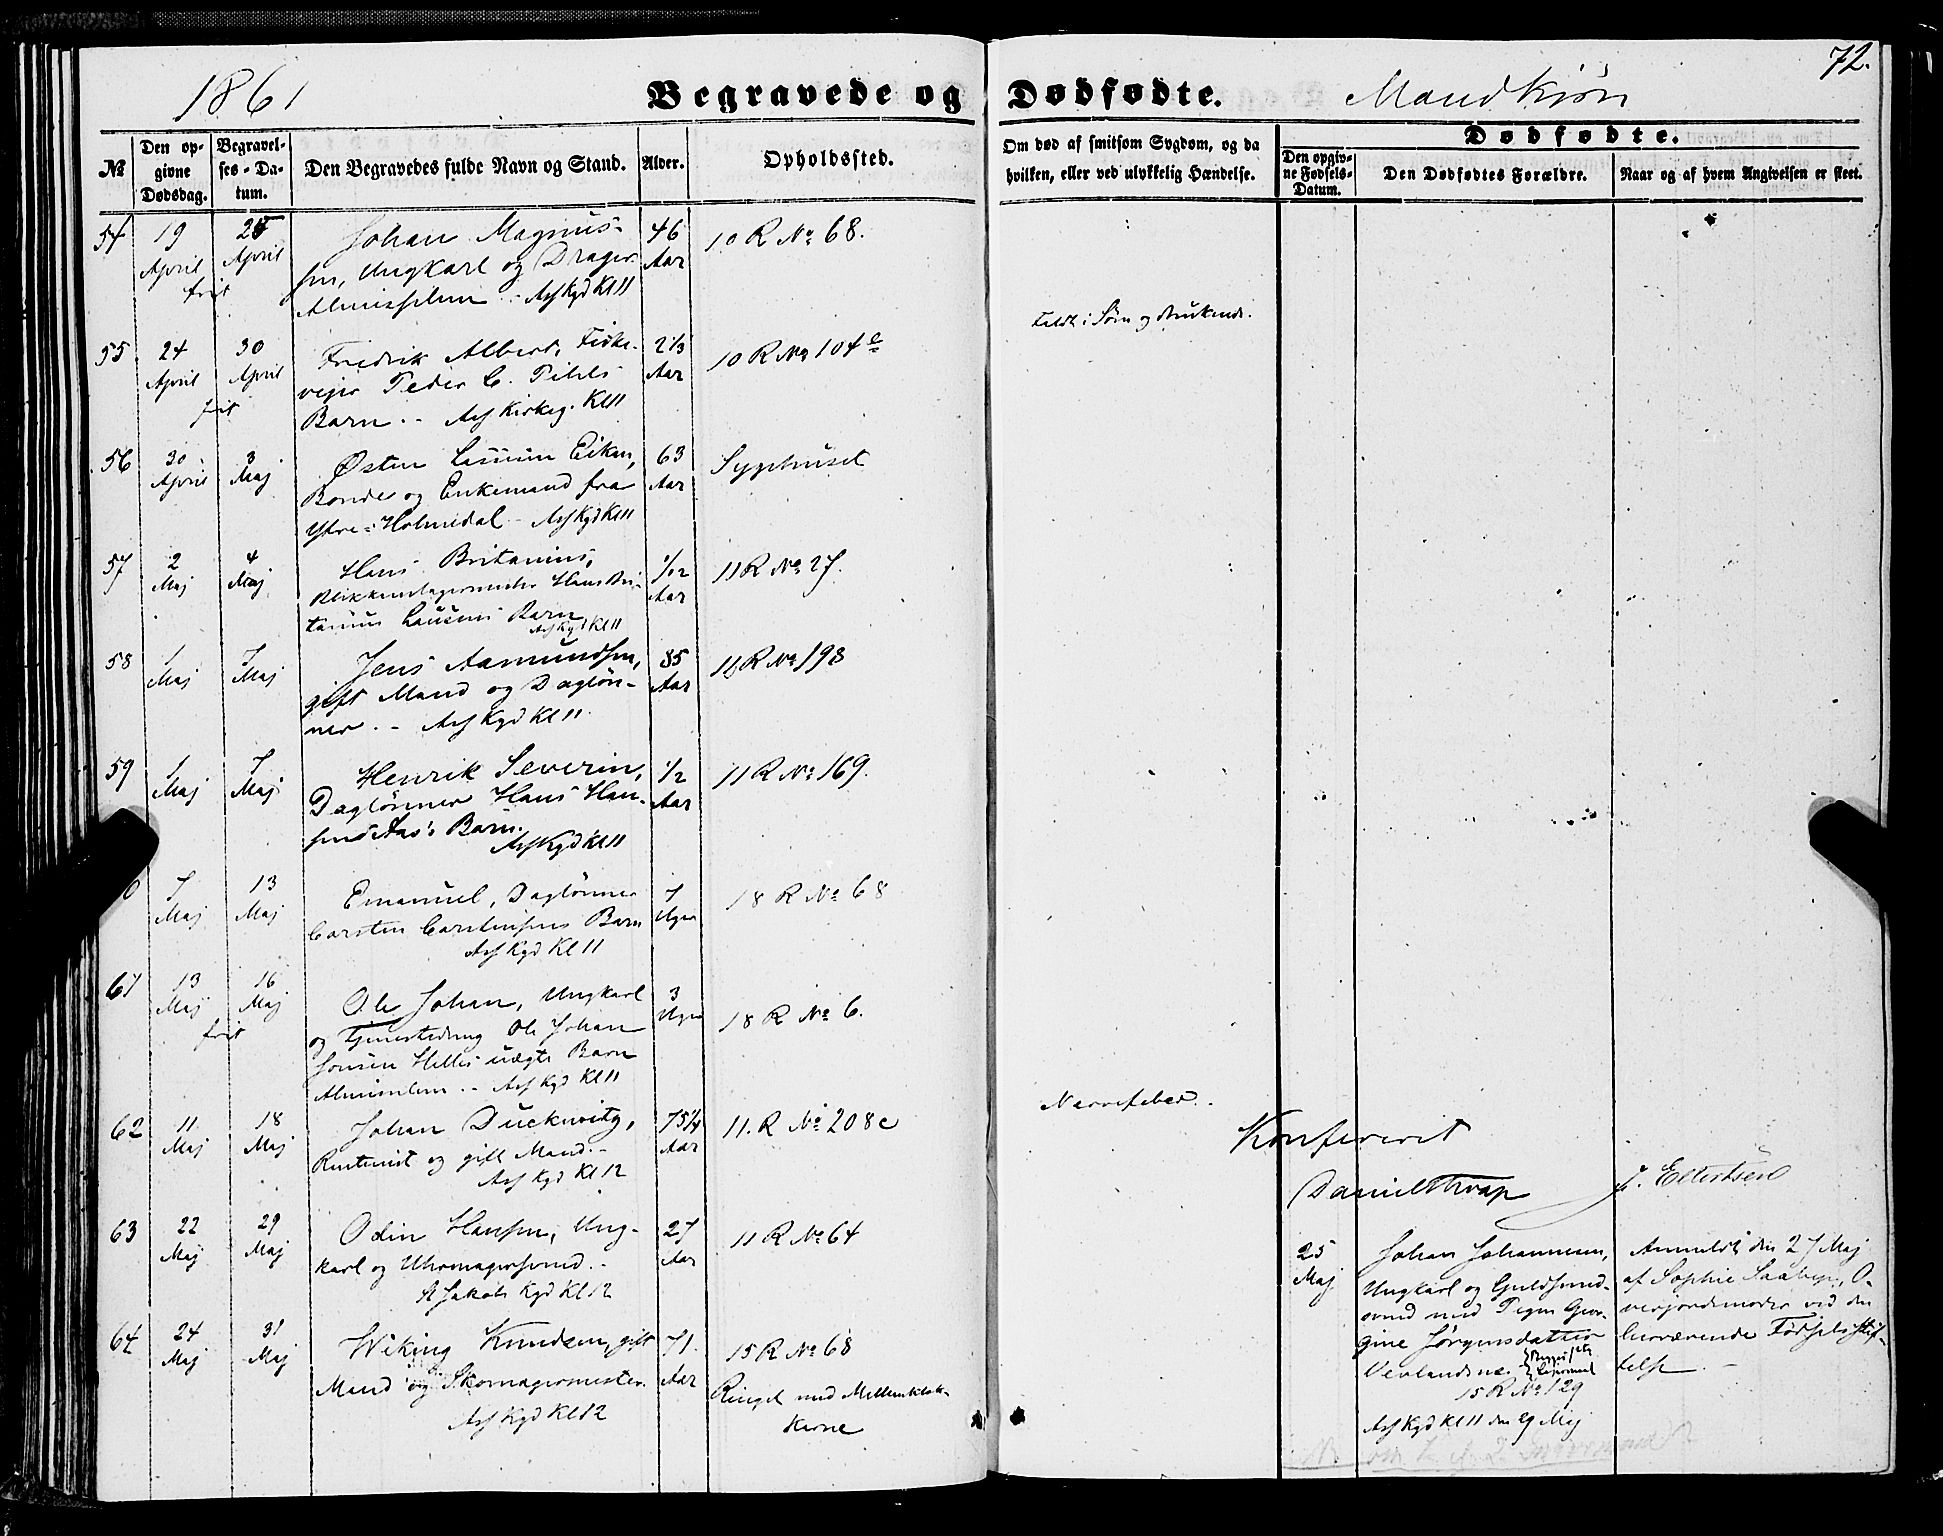 1861
Begravede og Dødfødte.
Mandkjön
72.
№
Den opgivne Dødsdag.
Begravelses-Datum.
Den Begravedes fulde Navn og Stand.
Alder.
Opholdssted.
Om død af smitsom Sygdom, og da
hvilken, eller ved ulykkelig Hændelse.
Dødfødte.
Den opgivne Fødsels-Datum.
Den Dødfødtes Forældre.
Naar og af hvem Angivelsen er skeet.
54 19 April 25 April frit
Johan Magnus-
sen, Ungkarl og Drager.
Almisselem - Ass Kgd Kl 11
46 Aar
10 R № 68.
55 24 April 30 April frit
Fredrik Albert, Fiske-
veier Peder C. Pihls
Barn. - Ass Kirkeg. Kl 11
2 1/3 Aar
10 R № 104 e
Faldt i Søen og druknede.
56 30 April 3 Maj
Østen Larssen Eiken,
Bonde og Enkemand fra
Ytre-Holmedal - Ass Kgd Kl 11
63 Aar
Sygehuset
57 2 Maj 4 Maj
Hans Britanius,
Blikkenslagermester Hans Bri-
tanius Lausens Barn
Ass Kgd Kl 11
1/12 Aar
11 R № 27.
58 1 Maj 7 Maj
Jens Aamundsen,
gift Mand og Daglön-
ner. - Ass Kgd Kl 11.
85 Aar
16 R № 198
59 1 Maj 7 Maj
Henrik Severin,
Daglönner Hans Han-
sens Aas's Barn.
Ass Kgd Kl 11
1/2 Aar
11 R № 169.
7 Maj 13 Maj
Emanuel, Daglönner
Carsten Carstensens Barn
Ass Kgd Kl 11
7 Uger
18 R № 68
61 13 Maj 16 Maj frit
Ole Johan, Ungkarl
og Tjenestedreng Ole Johan
Jonsen Helles uægte Barn
Almisselem. - Ass Kgd Kl 11
3 Uger
18 R № 6.
62 11 Maj 18 Maj
Johan Duckwitz,
Rentenist og gift Mand. -
Ass Kgd Kl 12
75 1/4 Aar
11. R № 208 c
Nervefeber. -
Konfereret
Danielstrup
J. Ellertsen
63 22 Maj 29 Maj
Odin Hansen, Ung-
karl og Uhrmagersvend. -
St Jakobs Kgd Kl 12
27 Aar
11 R № 64
64 24 Maj 31 Maj
Wiking Knudsen, gift
Mand og Skomagermester.
Ass Kgd Kl 12
71. Aar
15 R № 68
Ringet med Mellemklok-
kerne
25 Maj
Johan Johannesen,
Ungkarl og Guldsmed-
svend med Pigen Geor-
gine Jörgensdatter
15 R № 129
Ass Kgd Kl 11 den 29 Maj
Anmeldt den 27 Maj
af Sophie Saabye, O-
verjordemoder ved den
herværende Fødselsstif-
telse. -